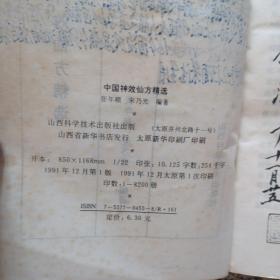 中国神效仙方精选
张年顺 宋乃光 编著
山西科学技术出版社出版 (太原并州北路十一号)
山西省新华书店发行 太原新华印刷厂印刷
开本: 850×1168mm 1/32 印张: 10.125 字数: 254千字
1991年12月第1版 1991年12月太原第1次印刷
印数: 1—8200册
ISBN 7-5377-0455-8/R·161
定价: 6.30元
方精选
十一月廿五